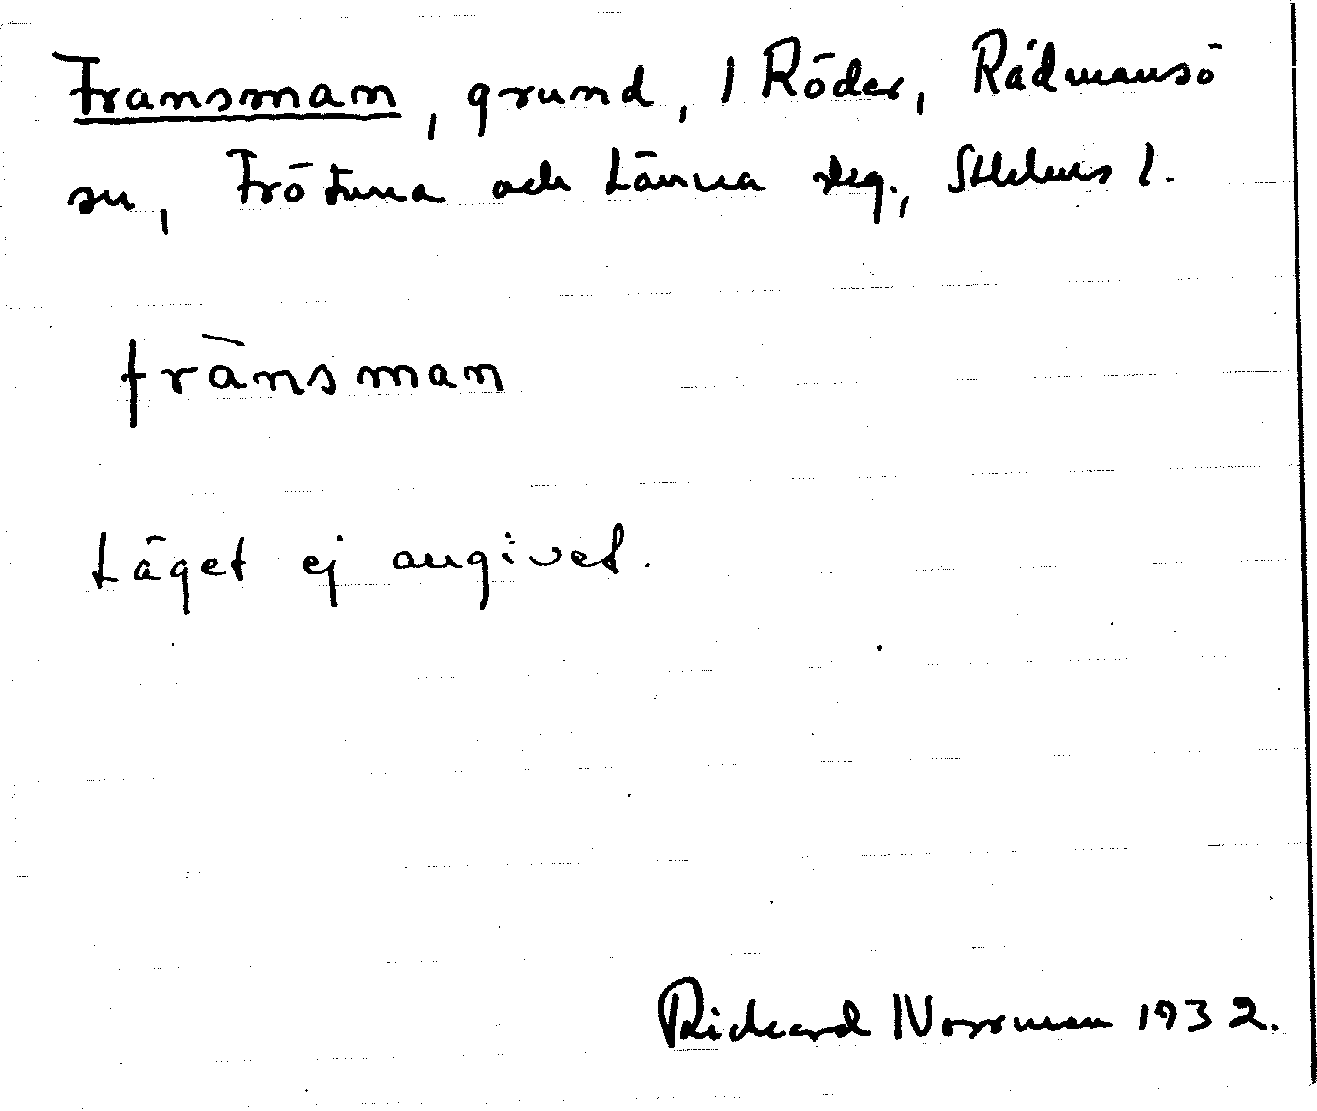 Fransman, grund, i Röder, Rådmansö
sn, Frötuna och Länna skg., Sthlms l.
fransman
Läget ej angivet.
Rickard Norrman 1932.